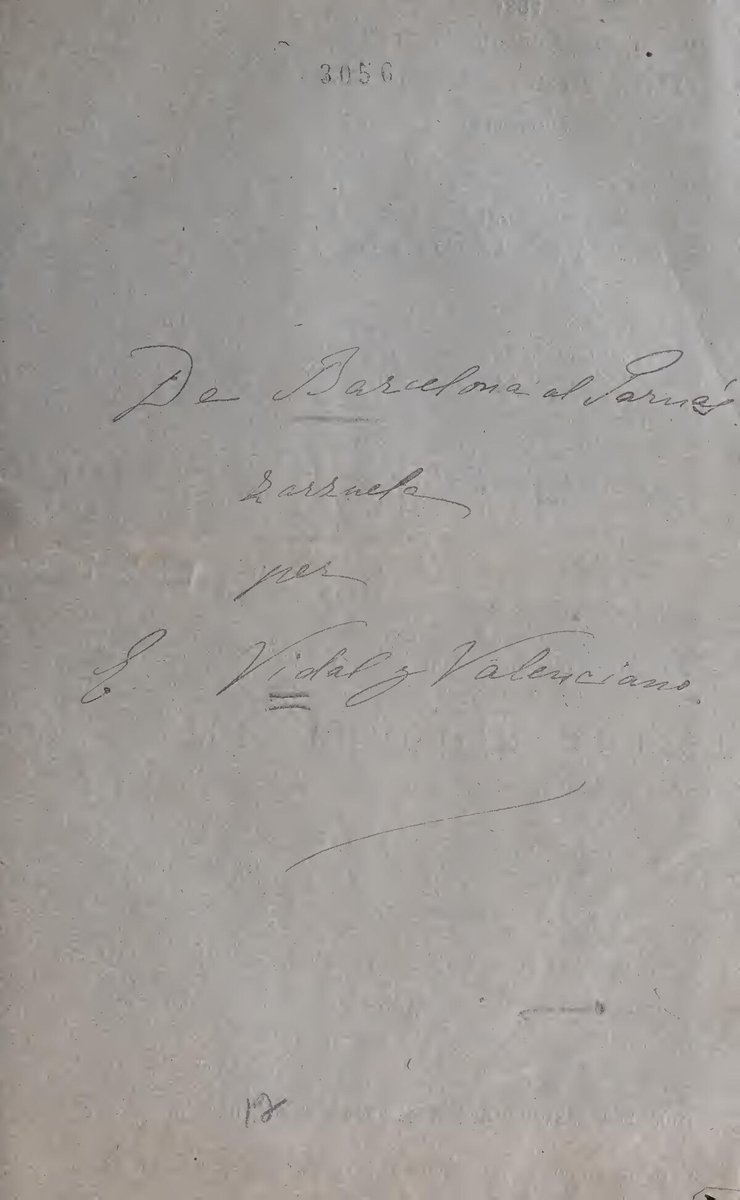 3056
De Barcelona al Parnás
zarzuela
per
E. Vidal y Valenciano.
12